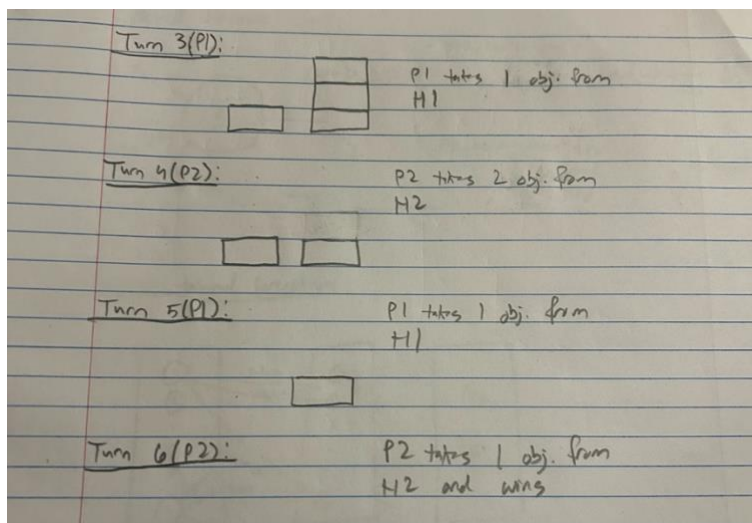 Turn 3(P1):
P1 takes 1 obj. from
H1
Turn 4(P2):
P2 takes 2 obj. from
H2
Turn 5(P1):
P1 takes 1 obj. from
H1
Turn 6(P2):
P2 takes 1 obj. from
H2 and wins